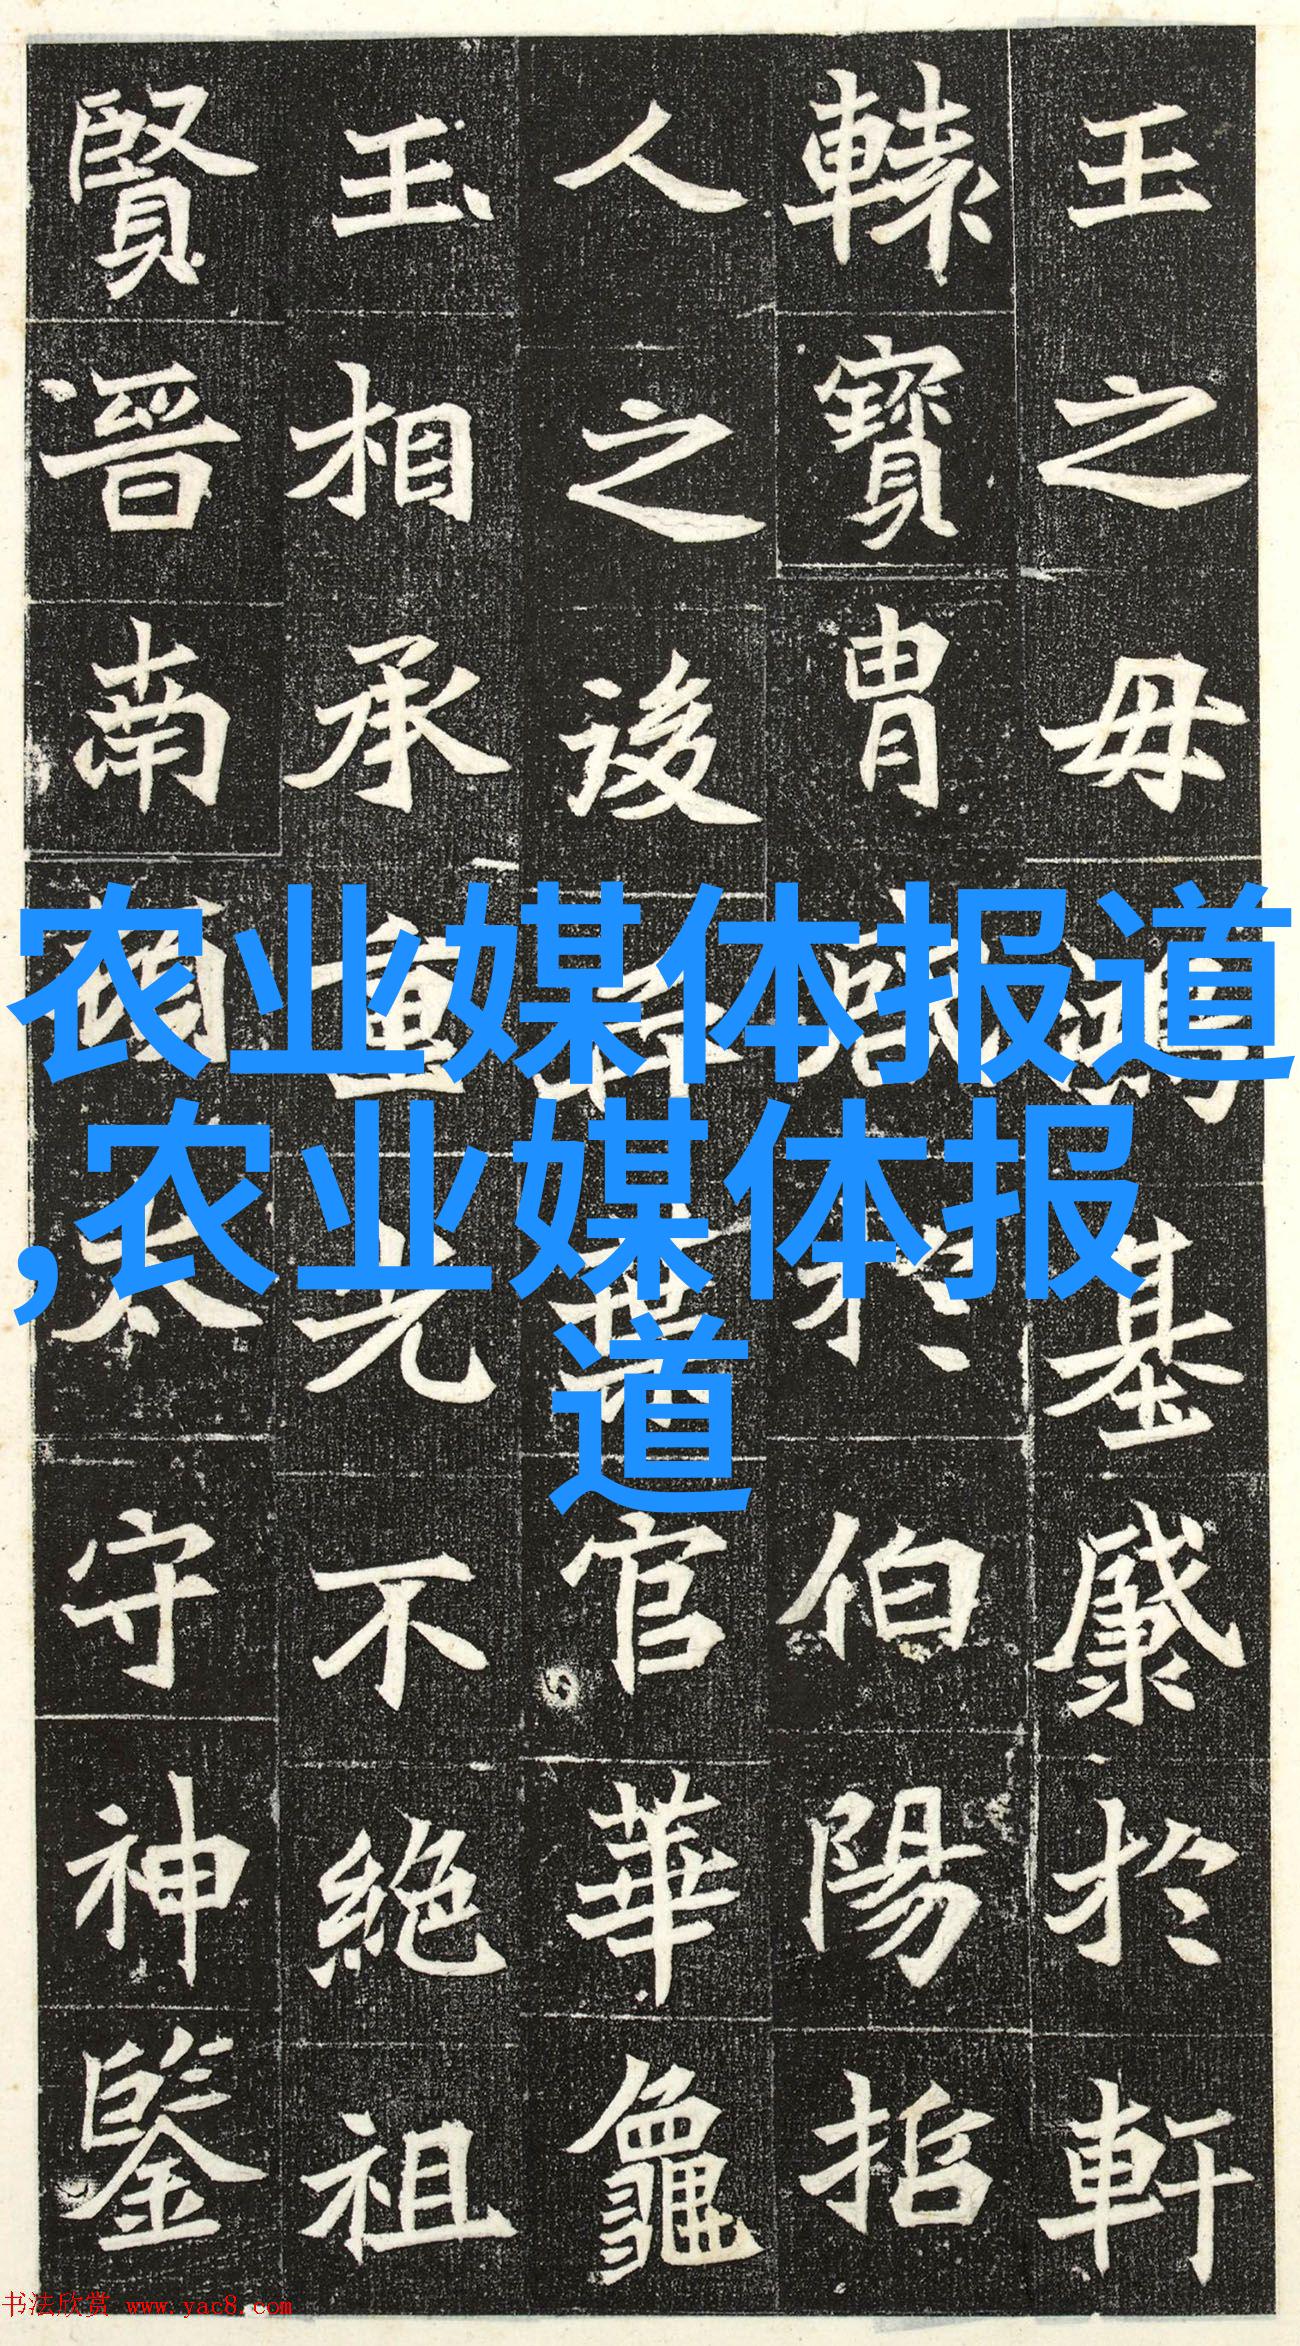 王之毋基於軒
轅寶胄於伯陽指
人之後葉官華龜
玉相承重光不絕祖
賢晉南頓太守神鑒
农业媒体报道
,农业媒体报
道
书法欣赏 www.yac8.com